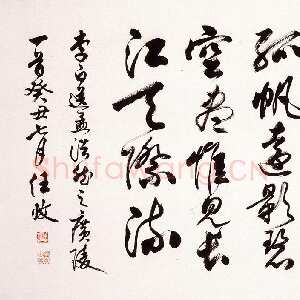 孤帆遠影碧
空盡惟見長
江天際流
李白送孟浩然之廣陵
一首癸丑七月任政
Shufawang.CN